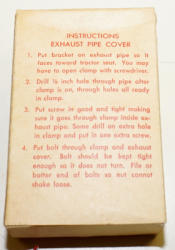 INSTRUCTIONS
EXHAUST PIPE COVER
1. Put bracket on exhaust pipe so it
faces toward tractor seat. You may
have to open clamp with screwdriver.
2. Drill ¼ inch hole through pipe after
clamp is on, through holes all ready
in clamp.
3. Put screw in good and tight making
sure it goes through clamp inside ex-
haust pipe. Some drill an extra hole
in clamp and put in one extra screw.
4. Put bolt through clamp and exhaust
cover. Bolt should be kept tight
enough so it does not turn. File or
batter end of bolts so nut cannot
shake loose.